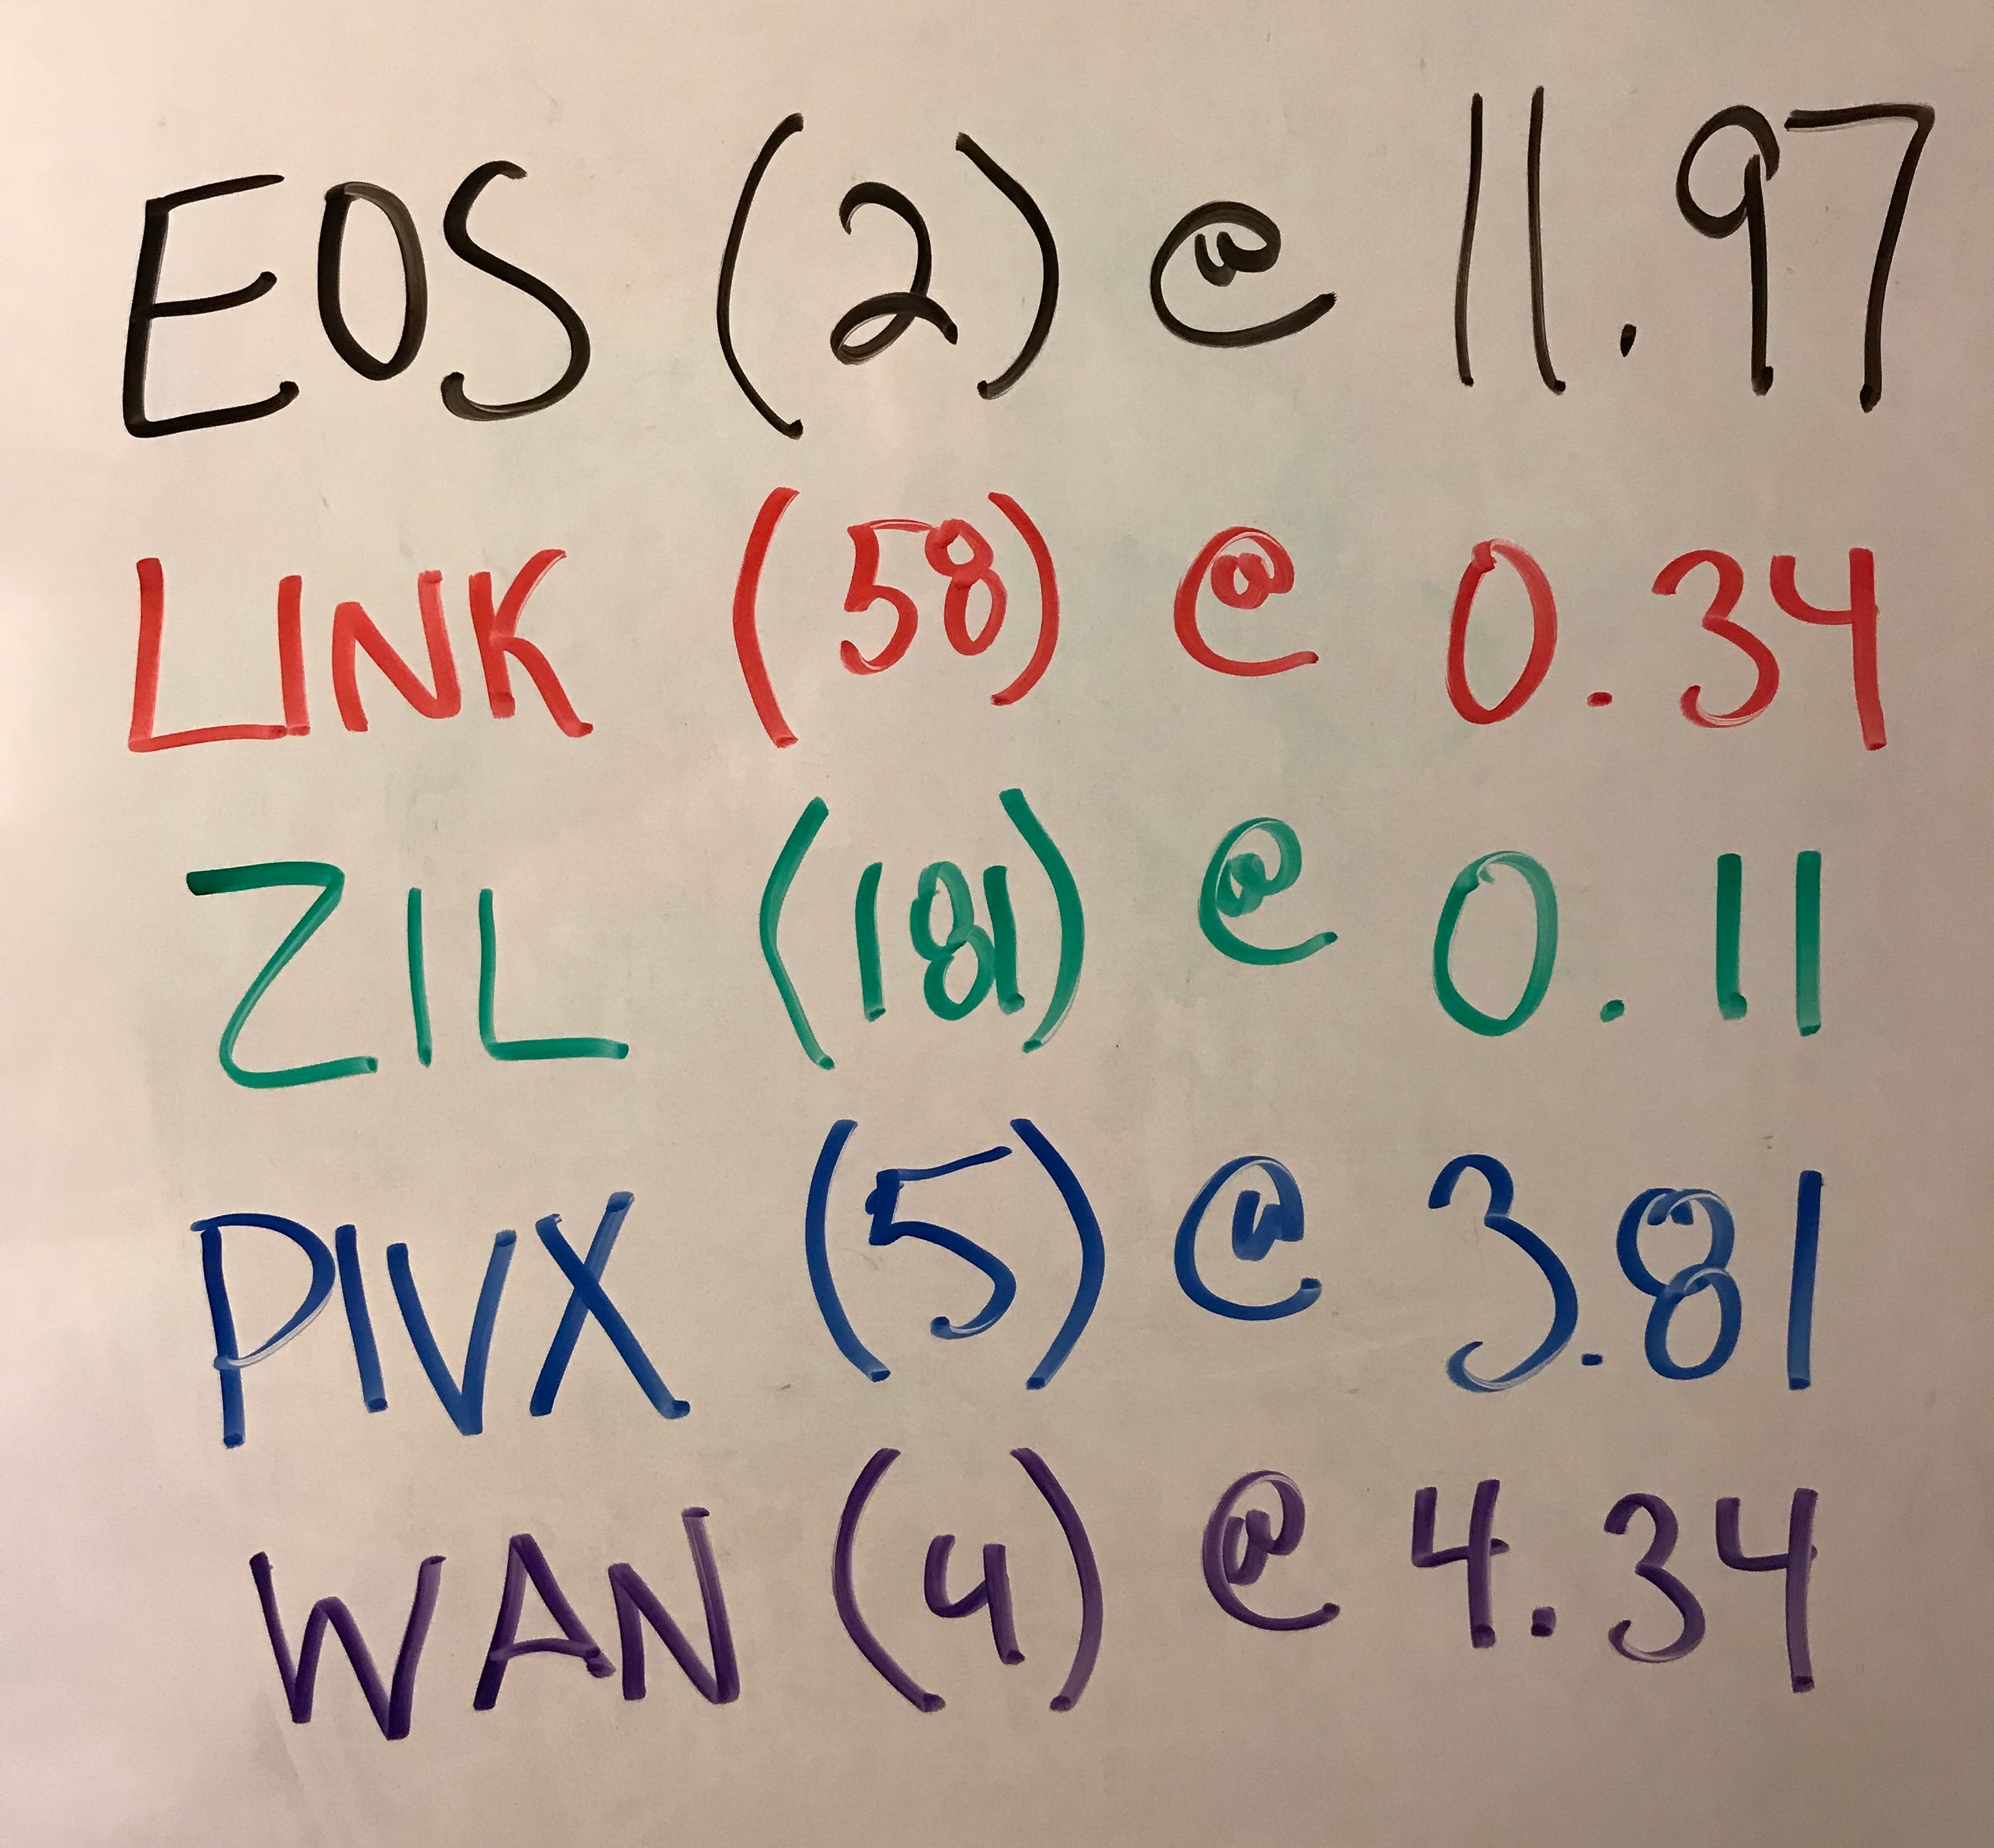 EOS (2) @ 11.97
LINK (58) @ 0.34
ZIL (181) @ 0.11
PIVX (5) @ 3.81
WAN (4) @ 4.34